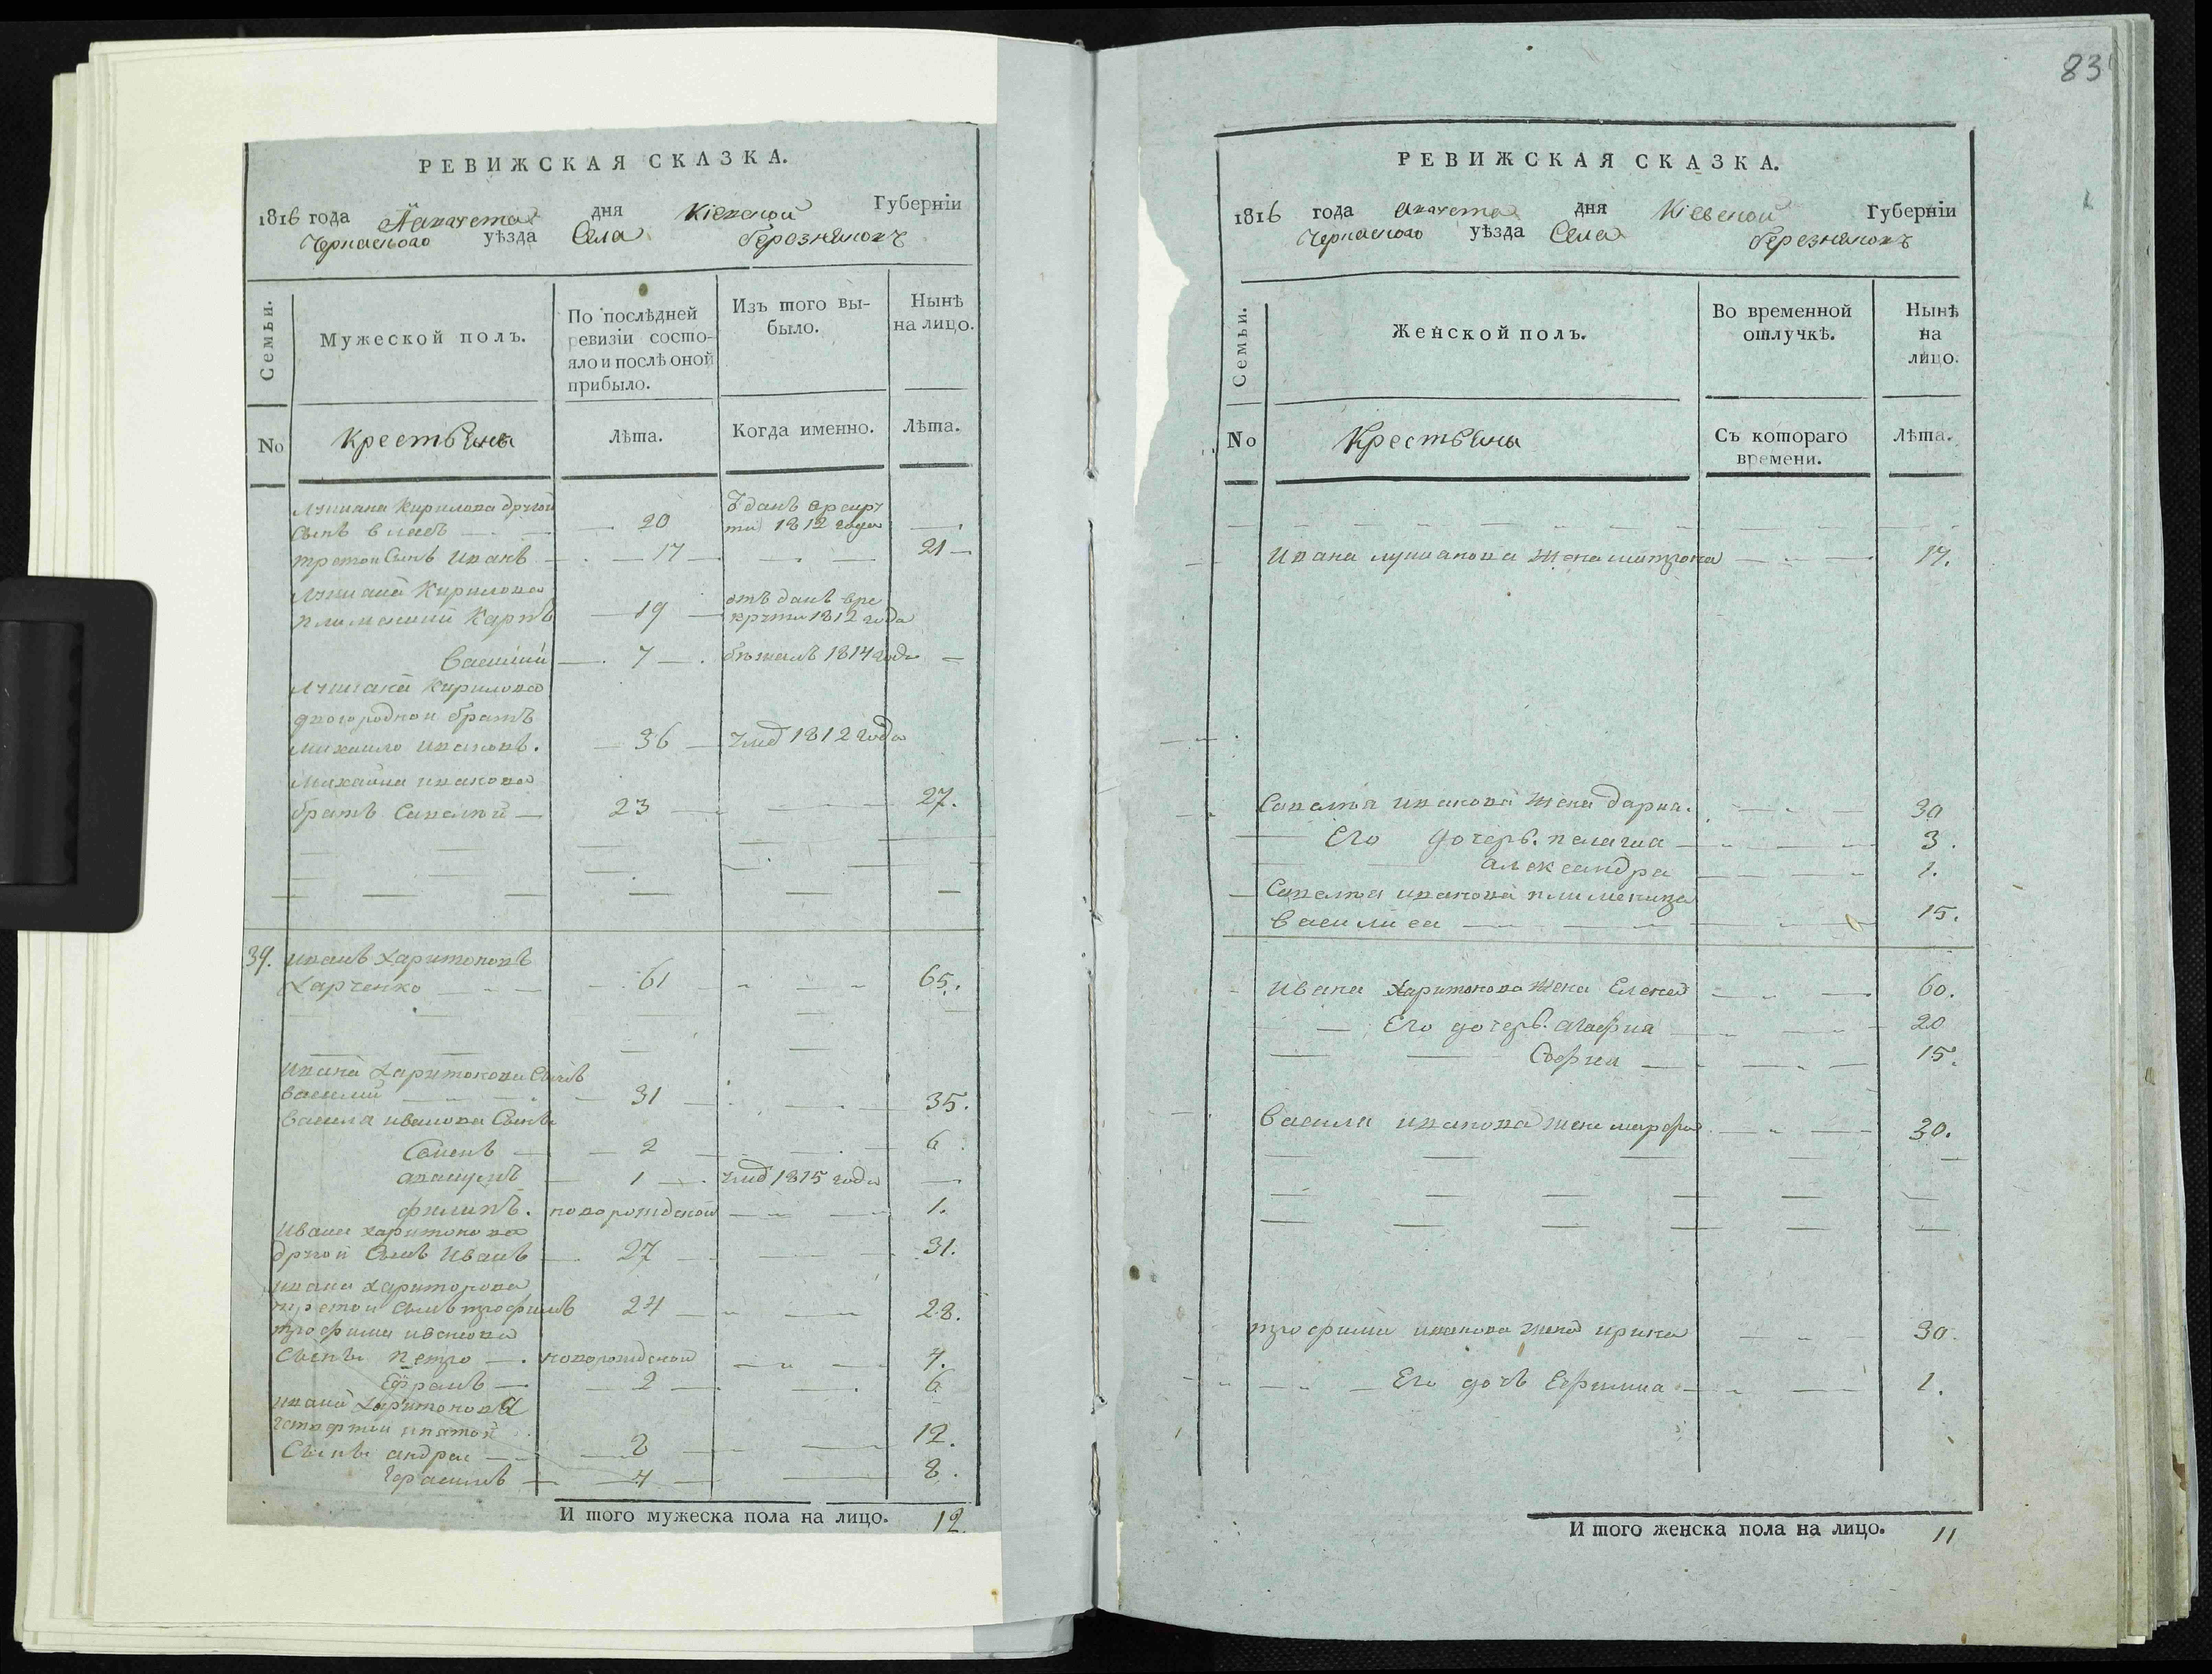 РЕВИЖСКАЯ СКАЗКА.
1816 года Августа дня Кіевской Губерніи
Черкаского уѣзда Села Березняковъ
Семьи.
Мужеской полъ.
По послѣдней ревизіи состо-
яло и послѣ оной
прибыло.
Изъ того вы-
было.
Нынѣ
на лицо.
No
Крестьяне
Лѣта.
Когда именно.
Лѣта.
Лукиана Кирилова другой
Сынъ 20
1812 года
третои Сынъ Иванъ 17 21
Лукиана Кирилова
племеники Карпъ 19 отъданъ вре
круты 1812 года
Василий 7 бѣжалъ 1814 года
Лукиана Кирилова
двоюродной братъ
михаило ивановъ. 36 умер 1812 года
Михаила иванова
братъ Савелий 23 27.
39. иванъ Харитоновъ
Харченко 61 65.
ивана Харитонова Сынъ
василий 31 35.
василя иванова Сынъ
Семенъ 2 6
1 умер 1815 года
филипъ. новорожденой 1.
Ивана харитонова
другой Сынъ Иванъ 27 31.
ивана харитонова
третои Сынъ трофимъ 24 28.
трофима иванова
Сынъ петро новорожденой 4.
Ефрамъ 2 6
ивана Харитонова
четвертой ипятой
Сынъ андреи 8 12.
Герасимъ 4 8.
И того мужеска пола на лицо. 12.
83
РЕВИЖСКАЯ СКАЗКА.
1816 года Августа дня Кіевской Губерніи
Черкаского уѣзда Села Березняковъ
Семьи.
Женской полъ.
Во временной
отлучкѣ.
Нынѣ
на
лицо.
No
Крестьяны
Съ котораго
времени.
Лѣта.
Ивана лукианова жена матрона 17.
Савелия иванова жена дария. 30
Его дочерь. пелагиа 3.
александра 1.
Савелия иванова племеница
василиса 15.
Ивана Харитонова жена Елена 60.
Его дочерь. агафиа 20
Софиа 15.
василя иванова жена марфа 30.
трофима иванова жена ирина 30.
Его дочъ Ефимиа 1.
И того женска пола на лицо. 11